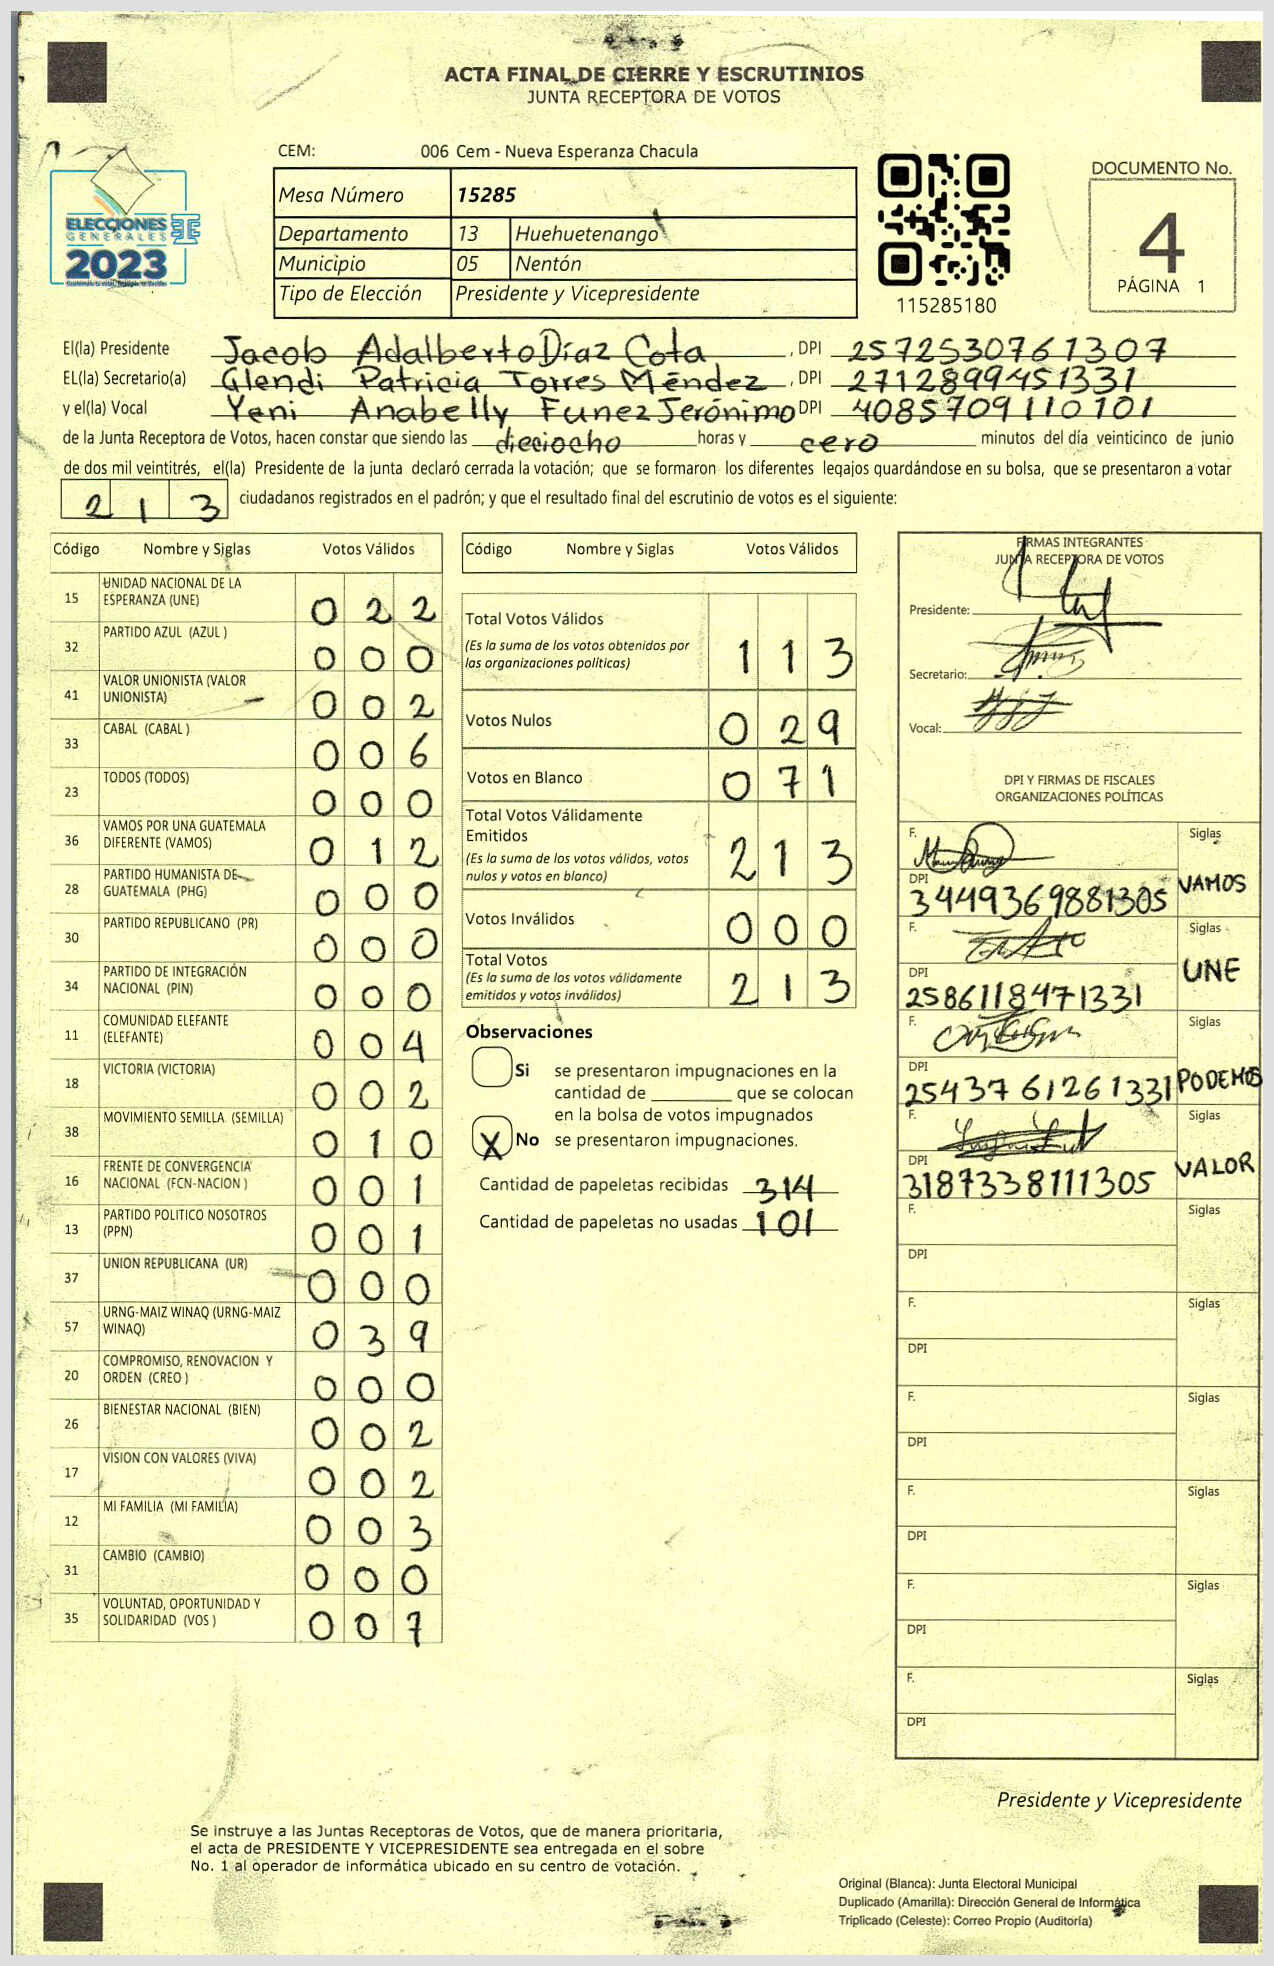 ACTA FINAL DE CIERRE Y ESCRUTINIOS
JUNTA RECEPTORA DE VOTOS
CEM: 006 Cem - Nueva Esperanza Chacula
ELECCIONES
GENERALES
2023
Mesa Número 15285
Departamento 13 Huehuetenango
Municipio 05 Nentón
Tipo de Elección Presidente y Vicepresidente
115285180
DOCUMENTO No.
4
PÁGINA 1
El(la) Presidente Jacob Adalberto Díaz Cota, DPI 2572530761307
EL(la) Secretario(a) Glendi Patricia Torres Méndez, DPI 2712899451331
y el(la) Vocal Yeni Anabelly Funez Jerónimo DPI 4085709110101
de la Junta Receptora de Votos, hacen constar que siendo las dieciocho horas y cero minutos del día veinticinco de junio
de dos mil veintitrés, el(la) Presidente de la junta declaró cerrada la votación; que se formaron los diferentes legajos quardándose en su bolsa, que se presentaron a votar
213 ciudadanos registrados en el padrón; y que el resultado final del escrutinio de votos es el siguiente:
Código Nombre y Siglas Votos Válidos
15 UNIDAD NACIONAL DE LA
ESPERANZA (UNE) 022
32 PARTIDO AZUL (AZUL ) 000
41 VALOR UNIONISTA (VALOR
UNIONISTA) 002
33 CABAL (CABAL ) 006
23 TODOS (TODOS) 000
36 VAMOS POR UNA GUATEMALA
DIFERENTE (VAMOS) 012
28 PARTIDO HUMANISTA DE
GUATEMALA (PHG) 000
30 PARTIDO REPUBLICANO (PR) 000
34 PARTIDO DE INTEGRACIÓN
NACIONAL (PIN) 000
11 COMUNIDAD ELEFANTE
(ELEFANTE) 004
18 VICTORIA (VICTORIA) 002
38 MOVIMIENTO SEMILLA (SEMILLA) 010
16 FRENTE DE CONVERGENCIA
NACIONAL (FCN-NACION ) 001
13 PARTIDO POLITICO NOSOTROS
(PPN) 001
37 UNION REPUBLICANA (UR) 000
57 URNG-MAIZ WINAQ (URNG-MAIZ
WINAQ) 039
20 COMPROMISO, RENOVACION Y
ORDEN (CREO ) 000
26 BIENESTAR NACIONAL (BIEN) 002
17 VISION CON VALORES (VIVA) 002
12 MI FAMILIA (MI FAMILIA) 003
31 CAMBIO (CAMBIO) 000
35 VOLUNTAD, OPORTUNIDAD Y
SOLIDARIDAD (VOS ) 007
Código Nombre y Siglas Votos Válidos
Total Votos Válidos
(Es la suma de los votos obtenidos por
las organizaciones políticas) 113
Votos Nulos 029
Votos en Blanco 071
Total Votos Válidamente
Emitidos
(Es la suma de los votos válidos, votos
nulos y votos en blanco) 213
Votos Inválidos 000
Total Votos
(Es la suma de los votos válidamente
emitidos y votos inválidos) 213
Observaciones
Si se presentaron impugnaciones en la
cantidad de ________ que se colocan
en la bolsa de votos impugnados
X No se presentaron impugnaciones.
Cantidad de papeletas recibidas 314
Cantidad de papeletas no usadas 101
FIRMAS INTEGRANTES
JUNTA RECEPTORA DE VOTOS
Presidente:
Secretario:
Vocal:
DPI Y FIRMAS DE FISCALES
ORGANIZACIONES POLÍTICAS
F. Siglas
DPI VAMOS
3449369881305
F. Siglas
DPI UNE
2586118471331
F. Siglas
DPI PODEMOS
2543761261331
F. Siglas
DPI VALOR
3187338111305
F. Siglas
DPI
F. Siglas
DPI
F. Siglas
DPI
F. Siglas
DPI
F. Siglas
DPI
F. Siglas
DPI
Presidente y Vicepresidente
Se instruye a las Juntas Receptoras de Votos, que de manera prioritaria,
el acta de PRESIDENTE Y VICEPRESIDENTE sea entregada en el sobre
No. 1 al operador de informática ubicado en su centro de votación.
Original (Blanca): Junta Electoral Municipal
Duplicado (Amarilla): Dirección General de Informática
Triplicado (Celeste): Correo Propio (Auditoría)